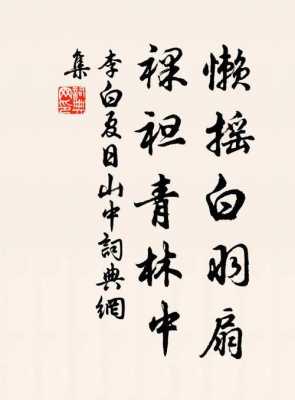 懒摇白羽扇
裸袒青林中
李白夏日山中詞典網
集